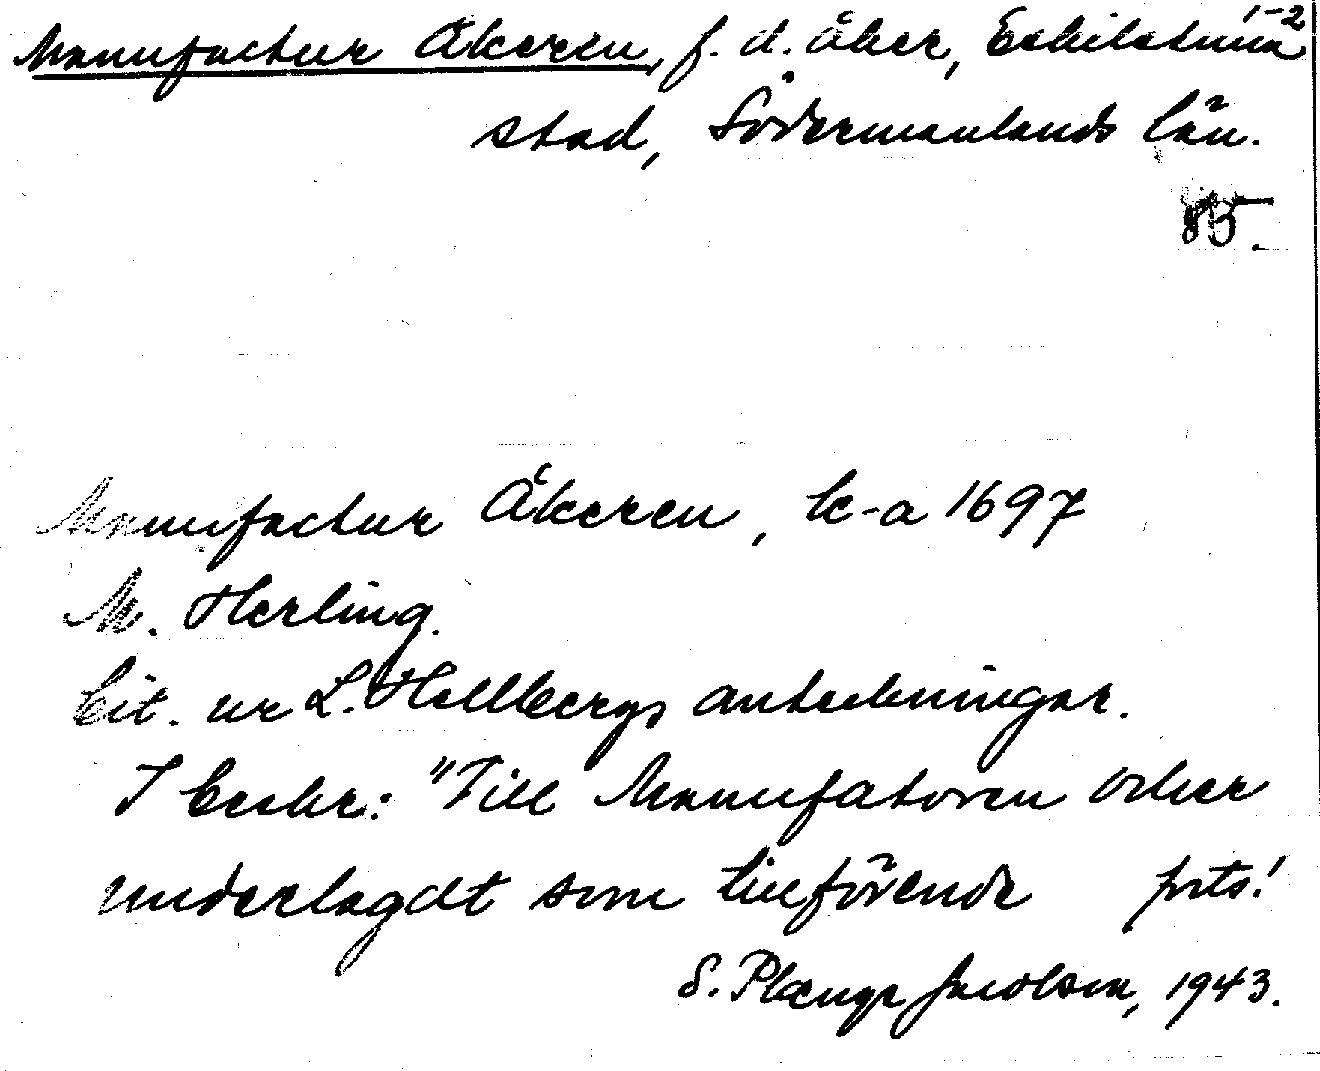 1-2
Manufactur Åkeren, f. d. åker, Eskilstuna
stad, Södermanlands län.
85.
Manufactur Åkeren, k-a 1697
M. Herling.
Cit. ur L. Hellbergs anteckningar.
I beskr: "Till Manufatoren
underlagdt som tillförende frts!
S. Plænge Jacobson, 1943.